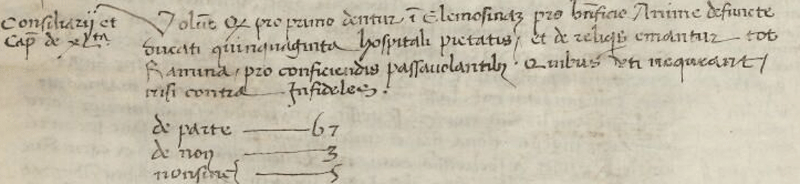 Consiliarij et
Cap^s de xl^ta
Volũt Qꝫ pro primo dentur ĩ Elemosinaꝫ pro bñficio Anime defuncte
ducati quinquaginta hospitali pietatis, et de reliqs emantur tot
Ramina, pro conficiendis passavolantibꝫ. Quibus uti nequeant,
nisi contra Infideles.
de parte — 67
de non — 3
nonsinc^e — 5